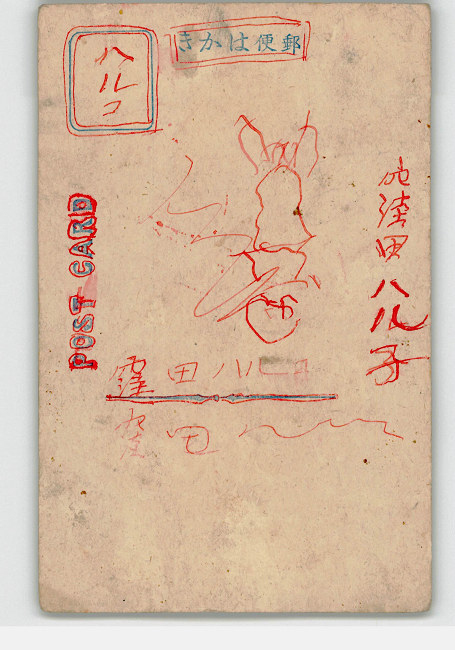 郵便はかき
ハルコ
田ハル子
POST CARD
窪田ハルコ
窪田